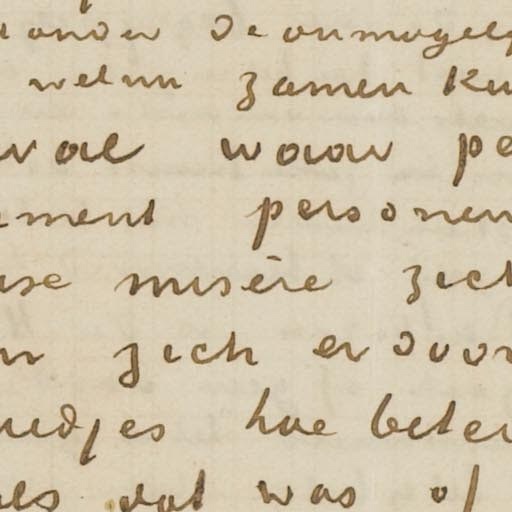 onder de onmogelij
wel nu zamen ku
val waar pe
ement personen
use misère zich
n zich er door
oedjes hoe beter
als dat was of